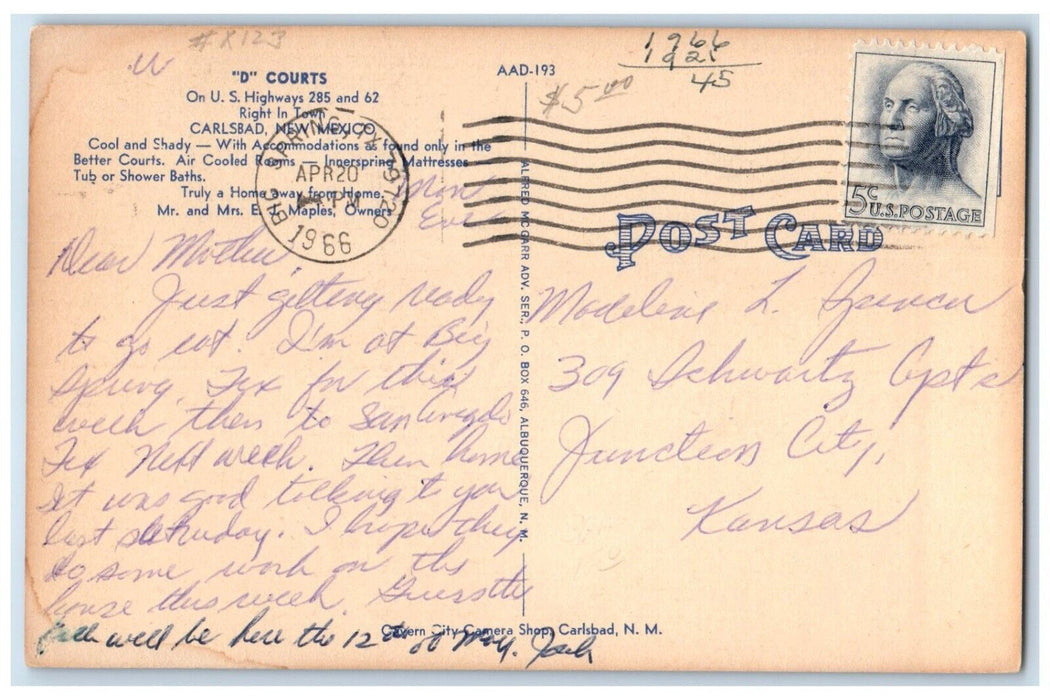 #R123
"D" COURTS
On U. S. Highways 285 and 62
Right In Town
CARLSBAD, NEW MEXICO
Cool and Shady — With Accommodations as found only in the
Better Courts. Air Cooled Rooms — Innerspring Mattresses
Tub or Shower Baths.
Truly a Home away from Home.
Mr. and Mrs. E. Maples, Owners
AAD-193
1966
1921
45
$5.00
BIG SPRING, TX 79720
APR 20
PM
1966
5c
U.S. POSTAGE
POST CARD
ALFRED MCGARR ADV. SER., P. O. BOX 646, ALBUQUERQUE, N. M.
Mon
Eve
Dear Mother
Just getting ready
to go eat. I'm at Big
Spring, Tex for this
week then to San Angelo
Tex Next week. Then home
It was good talking to you
last saturday. I hope they
do some work on the
house this week.
will be here the 12th of May. Jack
Madeline L. Spencer
309 Schwartz Apt's
Junction City,
Kansas
Cavern City Camera Shop, Carlsbad, N. M.